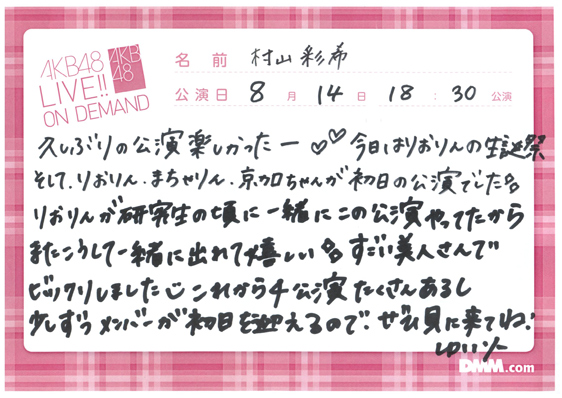 AKB48
LIVE!!
ON DEMAND
AKB
48
名前 村山彩希
公演日 8月14日 18:30公演
久しぶりの公演楽しかったー♡♡ 今日はりおりんの生誕祭
そして、りおりん、まちゃりん、京カロちゃんが初日の公演でした
りおりんが研究生の頃に一緒にこの公演やってたから
またこうして一緒に出れて嬉しい すごい美人さんで
ビックリしました これから4公演たくさんあるし
少しずつメンバーが初日を迎えるので、ぜひ見に来てね!
ゆいりー
DMM.com